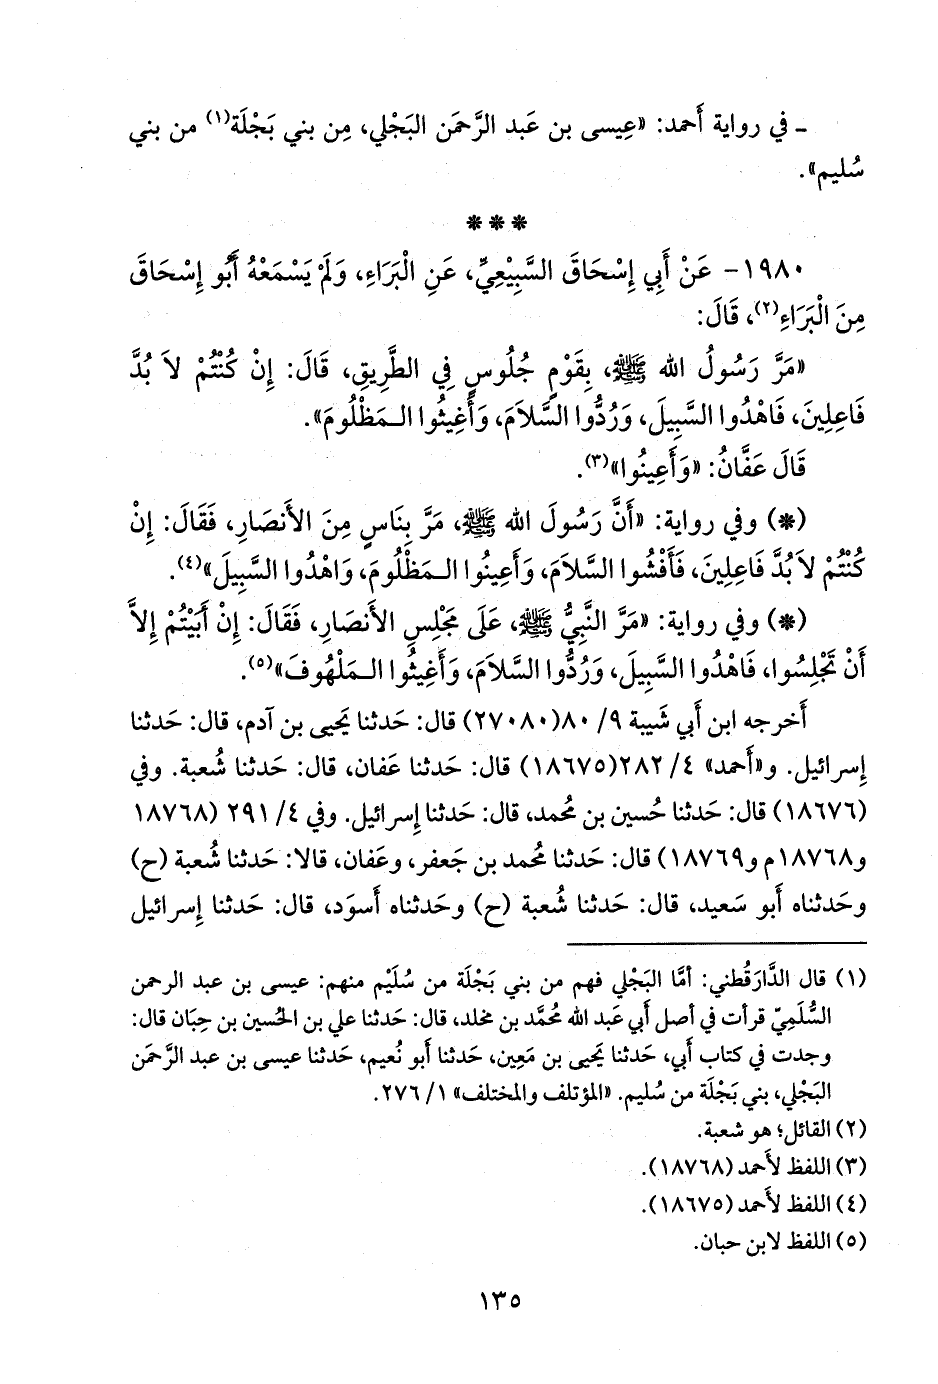 ـ في رواية أَحمد: «عِيسى بن عَبد الرَّحمَن البَجْلي، مِن بني بَجْلَة(١) من بني
سُليم».
***
١٩٨٠- عَنْ أَبِي إِسْحَاقَ السَّبِيْعِيِّ، عَنِ الْبَرَاءِ، وَلَمْ يَسْمَعْهُ أَبُو إِسْحَاقَ
مِنَ الْبَرَاءِ(٢)، قَالَ:
«مَرَّ رَسُولُ الله ﷺ، بِقَوْمٍ جُلُوسٍ فِي الطَّرِيقِ، قَالَ: إِنْ كُنْتُمْ لاَ بُدَّ
فَاعِلِينَ، فَاهْدُوا السَّبِيلَ، وَرُدُّوا السَّلاَمَ، وَأَغِيثُوا الـمَظْلُومَ».
قَالَ عَفَّانُ: «وَأَعِينُوا»(٣).
(*) وفي رواية: «أَنَّ رَسُولَ الله ﷺ، مَرَّ بِنَاسٍ مِنَ الأَنصَارِ، فَقَالَ: إِنْ
كُنْتُمْ لاَ بُدَّ فَاعِلِينَ، فَأَفْشُوا السَّلاَمَ، وَأَعِينُوا الـمَظْلُومَ، وَاهْدُوا السَّبِيلَ»(٤).
(*) وفي رواية: «مَرَّ النَّبِيُّ ﷺ، عَلَى مَجْلِسِ الأَنصَارِ، فَقَالَ: إِنْ أَبَيْتُمْ إِلاَّ
أَنْ تَجْلِسُوا، فَاهْدُوا السَّبِيلَ، وَرُدُّوا السَّلاَمَ، وَأَغِيثُوا الـمَلْهُوفَ»(٥).
أَخرجه ابن أبي شَيبة ٩/ ٨٠(٢٧٠٨٠) قال: حَدثنا يَحيى بن آدم، قال: حَدثنا
إِسرائيل. و«أَحمد» ٤/ ٢٨٢(١٨٦٧٥) قال: حَدثنا عَفان، قال: حَدثنا شُعبة. وفي
(١٨٦٧٦) قال: حَدثنا حُسين بن مُحمد، قال: حَدثنا إِسرائيل. وفي ٤/ ٢٩١ (١٨٧٦٨
و١٨٧٦٨م و١٨٧٦٩) قال: حَدثنا مُحمد بن جَعفر، وعَفان، قالا: حَدثنا شُعبة (ح)
وحَدثناه أَبو سَعيد، قال: حَدثنا شُعبة (ح) وحَدثناه أَسوَد، قال: حَدثنا إِسرائيل
(١) قال الدَّارَقُطني: أمَّا البَجْلي فهم من بني بَجْلَة من سُلَيْم منهم: عيسى بن عبد الرحمن
السُّلَمِيّ قرأت في أصل أَبي عَبد الله مُحمَّد بن مخلد، قال: حَدثنا علي بن الحُسين بن حِبَان قال:
وجدت في كتاب أبي، حَدثنا يَحيى بن مَعِين، حَدثنا أبو نُعيم، حَدثنا عيسى بن عبد الرَّحمَن
البَجْلي، بني بَجْلَة من سُليم. «المؤتلف والمختلف» ١/ ٢٧٦.
(٢) القائل؛ هو شعبة.
(٣) اللفظ لأَحمد (١٨٧٦٨).
(٤) اللفظ لأَحمد (١٨٦٧٥).
(٥) اللفظ لابن حبان.
١٣٥